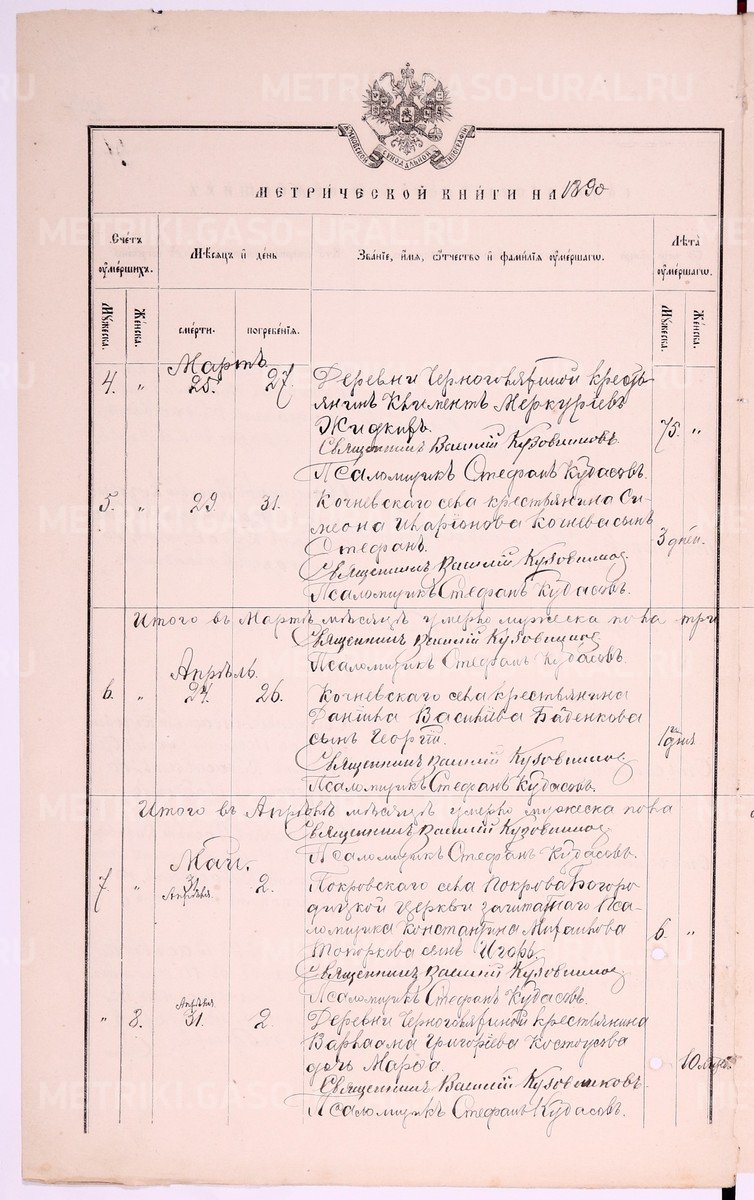 METRIKI.GASO-URAL.RU
МОСКОВСКОЙ СѴНОДАЛЬНОЙ ТИПОГРАФІИ
МЕТРИЧЕСКОЙ КНИГИ НА 1890
Счетъ умершихъ.
Мѣсяцъ и день
Званіе, имя, отчество и фамилія умершаго.
Лѣта умершаго.
Мужеска.
Женска.
смерти.
погребенія.
Мужеска.
Женска.
Мартъ
4. " 25. 27. Деревни крестъ
янинъ Климентъ Меркуріевъ
Жидковъ. 75. "
Священникъ Василій Кузовниковъ.
Псаломщикъ Стефанъ Кудасовъ.
5. " 29. 31. Кочневскаго села крестьянина Си-
меона Иларіонова Кочнева сынъ
Стефанъ. 3 дней.
Священникъ Василій Кузовников
Псаломщикъ Стефанъ Кудасовъ.
Итого въ Мартѣ мѣсяцѣ умерло мужеска пола три
Священникъ Василій Кузовников
Псаломщикъ Стефанъ Кудасовъ.
Апрѣль.
6. " 24. 26. Кочневскаго села крестьянина
Даніила Василіева Бабенкова
сынъ Георгій. дня
Священникъ Василій Кузовников
Псаломщикъ Стефанъ Кудасовъ.
Итого въ Апрѣлѣ мѣсяцѣ умерло мужеска пола
Священникъ Василій Кузовников
Псаломщикъ Стефанъ Кудасовъ.
Май.
7. " 31 Апрѣля 2. Покровскаго села Покрова Богоро-
дицкой церкви заштатнаго Пса-
ломщика Константина Михаилова 6 "
Топоркова сынъ Игорь.
Священникъ Василій Кузовников
Псаломщикъ Стефанъ Кудасовъ.
Апрѣля
" 8. 31. 2. Деревни крестьянина
Варлаама Григоріева Костоусова
дочь Марѳа. 10
Священникъ Василій Кузовниковъ.
Псаломщикъ Стефанъ Кудасовъ.